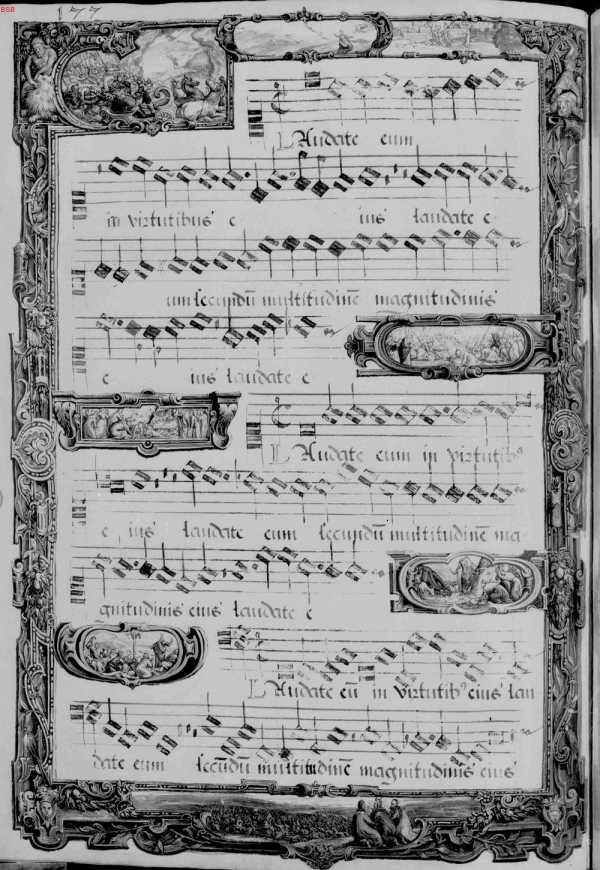 BSB
177
LAudate eum
in virtutibus e ius laudate e
um secundũ multitudinẽ magnitudinis
e ius laudate e
LAudate eum in virtutib9
e ius laudate eum secundũ multitudinẽ ma
gnitudinis eius laudate e
LAudate eũ in virtutib9 eius lau
date eum secũdũ multitudinẽ magnitudinis eius